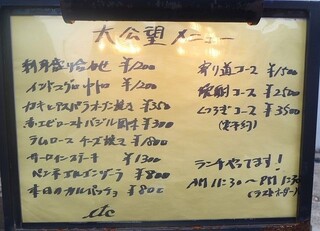 大公望メニュー
刺身盛り合わせ ¥1200
インドマグロ中トロ ¥1200
カキとアスパラオーブン焼き ¥350
ローストバジル風味 ¥300
ラムロース チーズ焼き ¥1800
サーロインステーキ ¥1300
ペンネゴルゴンゾーラ ¥800
本日のカルパッチョ ¥800
etc
寄り道コース ¥1500
晩酌コース ¥2500
くつろぎコース ¥3500
(要予約)
ランチやってます!
AM 11:30 〜 PM 1:30
(ラストオーダー)